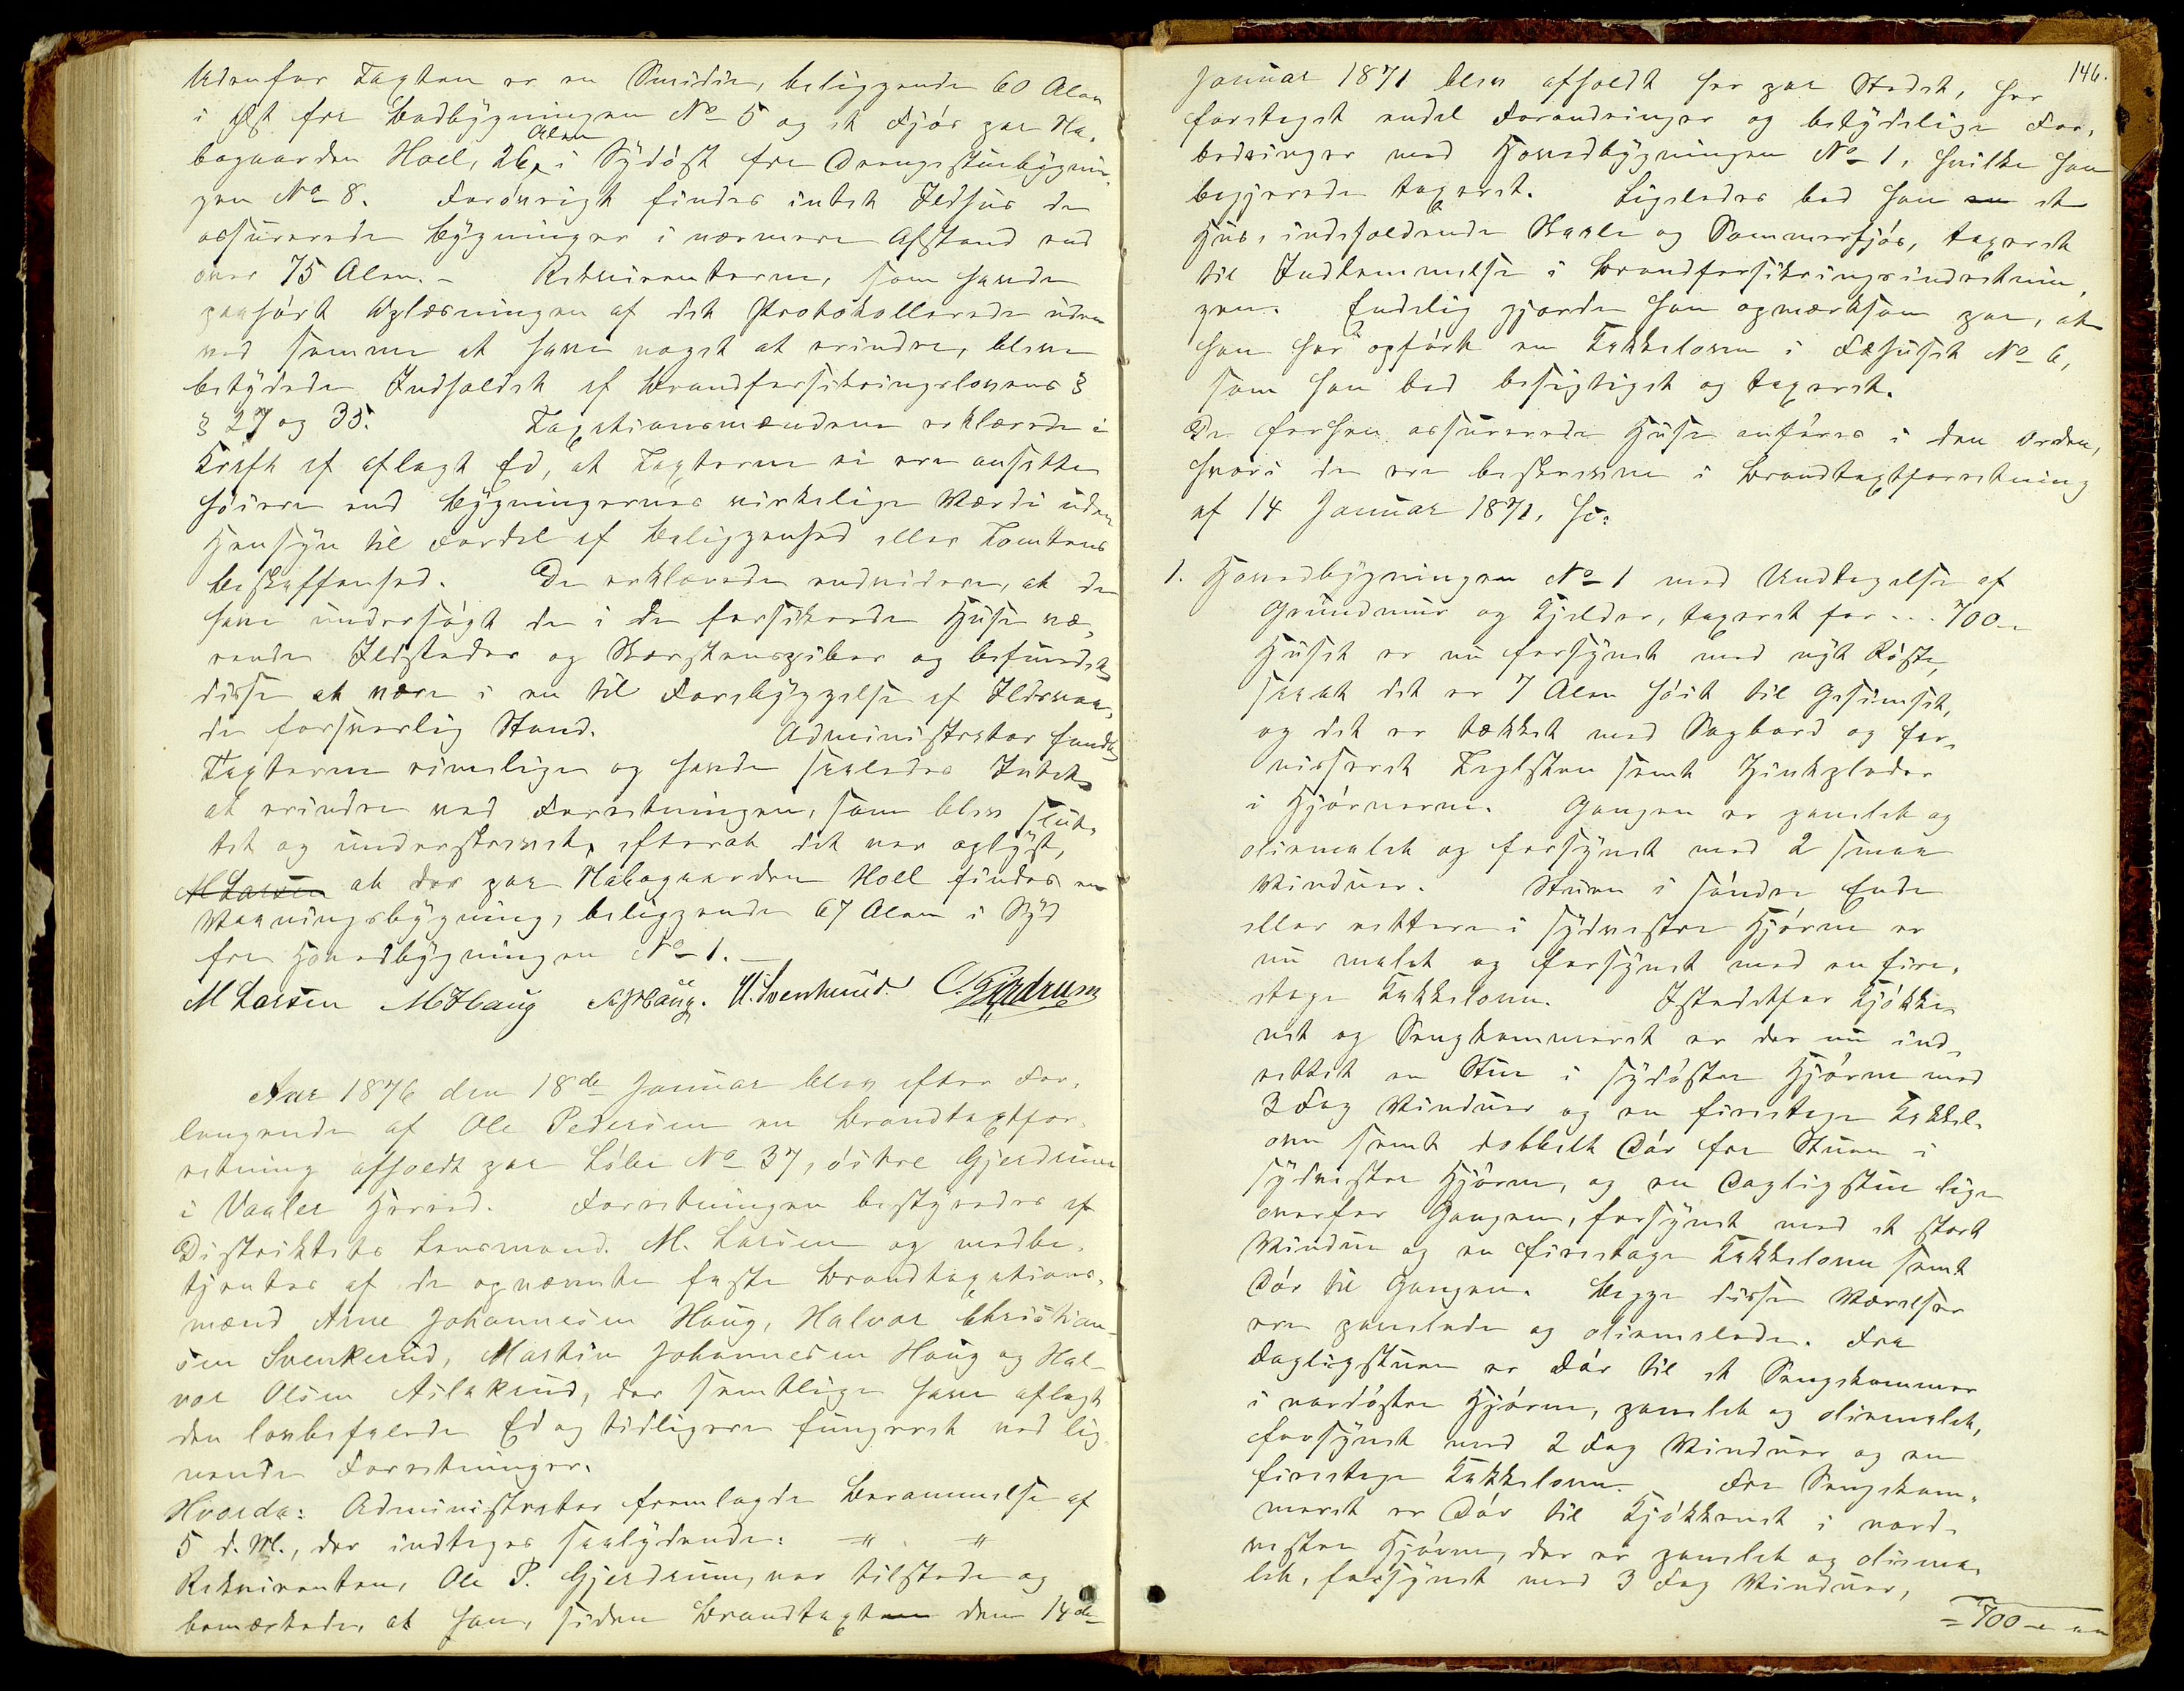 Udenfor Taxten er en Smidie, beliggende 60 Alen
i Øst fra Bodbygningen No 5 og et Fjøs paa Na-
bogaarden Hoel, 26 Alen i Sydøst fra Drengestuebygnin-
gen No 8. Forøvrigt findes intet Ildhus de
assurerede Bygninger i nærmere Afstand end
over 75 Alen. - Rekvirenterne, som havde
paahørt Oplæsningen af det Protokollerede uden
ved samme at have noget at erindre, bleve
betydede Indholdet af Brandforsikringslovens §
§ 27 og 35. Taxationsmændene erklærede i
Kraft af aflagt Ed, at Taxterne ei ere ansatte
høiere end Bygningernes virkelige Værdi uden
Hensyn til Fordel af Beliggenhed eller Tomtens
Beskaffenhed. De erklærede endvidere, at de
have undersøgt de i de forsikrede Huse væ-
rende Ildsteder og Skorstenspiber og befundet
disse at være i en til Forebyggelse af Ildsvaa-
de forsvarlig Stand. Administrator fandt
Taxterne rimelige og havde saaledes Intet
at erindre ved Forretningen, som blev slut-
tet og underskrevet, efterat det var oplyst,
M Larsen at der paa Nabogaarden Hoel findes en
Vaaningsbygning, beliggende 67 Alen i Syd
fra Hovedbygningen No 1. -
M Larsen M J Haug A J Haug. H. Svenkerud. C. Gjerdrum
Aar 1876 den 18de Januar blev efter For-
langende af Ole Pedersen en Brandtaxtfor-
retning afholdt paa Løbe No 37, østre Gjerdrum
i Vaaler Herred. Forretningen bestyredes af
Distriktets Lensmand M. Larsen og medbe-
tjentes af de opnævnte faste Brandtaxations-
mænd Arne Johannesen Haug, Halvor Christian-
sen Svenkerud, Martin Johannesen Haug og Hal-
vor Olsen Aslakrud, der samtlige have aflagt
den lovbefalede Ed og tidligere fungeret ved lig-
nende Forretninger.
Hvorda: Administrator fremlagde Berammelse af
5 d. M., der indtages saalydende: -"- -"-
Rekvirenten, Ole P. Gjerdrum, var tilstede og
bemærkede, at han, siden Brandtaxten den 14de
146.
Januar 1871 blev afholdt her paa Stedet, har
foretaget endel Forandringer og betydelige For-
bedringer med Hovedbygningen No 1, hvilke han
begjærede taxeret. Ligeledes bad han en et
Hus, indeholdende Skaale og Sommerfjøs, taxeret
til Indlemmelse i Brandforsikringsindretnin-
gen. Endelig gjorde han opmærksom paa, at
han har opført en Kakkelovn i Fæhuset No 6,
som han bad besigtiget og taxeret.
De forhen assurerede Huse anføres i den Orden,
hvori de ere beskrevne i Brandtaxtforretning
af 14 Januar 1871, sc:
1. Hovedbygningen No 1 med Undtagelse af
Grundmur og Kjelder, taxeret for ... 700 -
Huset er nu forsynet med nyt Røste,
saaat det er 7 Alen høit til Gesimset,
og det er tækket med Sagbord og for-
nisseret Teglsten samt Zinkplader
i Hjørnerne. Gangen er panelet og
oliemalet og forsynet med 2 smaa
Vinduer. Stuen i søndre Ende
eller rettere i sydvestre Hjørne er
nu malet og forsynet med en fire-
etage Kakkelovn. Istedetfor Kjøkke-
net og Sengkammeret er der nu ind-
rettet en Stue i sydøstre Hjørne med
3 Fag Vinduer og en fireetage Kakkel-
ovn samt dobbelt Dør fra Stuen i
sydvestre Hjørne, og en Dagligstue lige
overfor Gangen, forsynet med et stort
Vindue og en fireetage Kakkelovn samt
Dør til Gangen. Begge disse Værelser
ere panelede og oliemalede. Fra
Dagligstuen er Dør til et Sengekammer
i nordøstre Hjørne, panelet og oliemalet,
forsynet med 2 Fag Vinduer og en
fireetage Kakkelovn. Fra Sengekam-
meret er Dør til Kjøkkenet i nord-
vestre Hjørne, der er panelet og oliema-
let, forsynet med 3 Fag Vinduer,
= 700 -